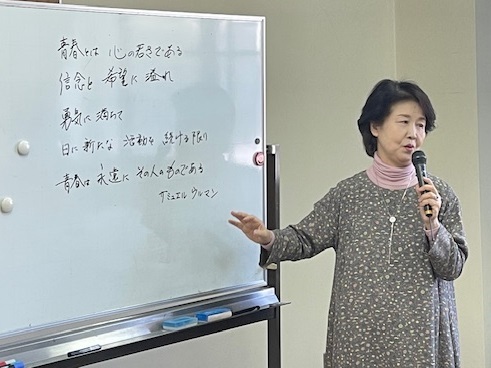 青春とは 心の若さである
信念と 希望に 溢れ
勇気に 満ちて
日に新たな 活動を 続ける限り
青春は 永遠に その人のものである
サミュエル ウルマン